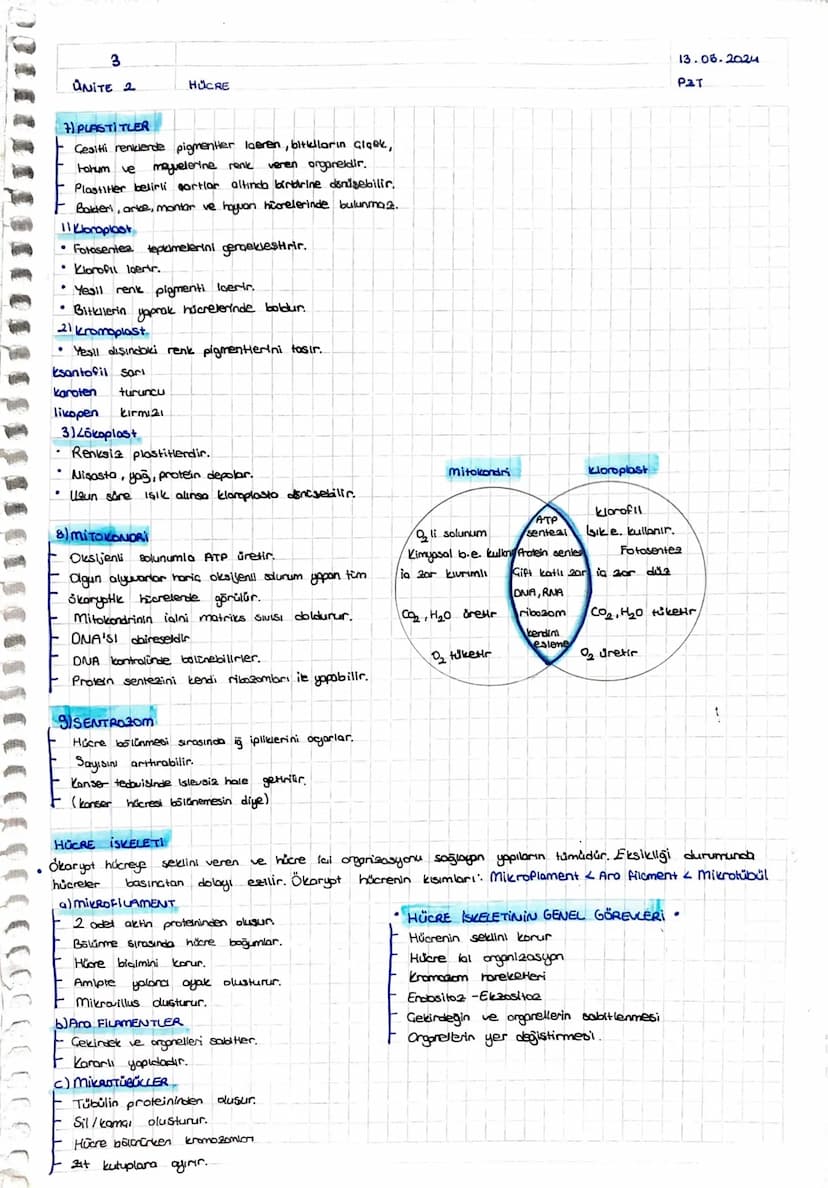 3
13.06.2024
ÜNİTE 2 HÜCRE
PZT
7) PLASTİTLER
Çeşitli renklerde pigmentler içeren, bitkilerin çiçek,
tohum ve meyvelerine renk veren organeldir.
Plastitler belirli şartlar altında birbirine dönüşebilir.
Bakteri, arke, mantar ve hayvan hücrelerinde bulunmaz.
1) Kloroplast
• Fotosentez tepkimelerini gerçekleştirir.
• Klorofil içerir.
• Yeşil renk pigmenti içerir.
• Bitkilerin yaprak hücrelerinde boldur.
2) Kromoplast
• Yeşil dışındaki renk pigmentlerini taşır.
ksantofil sarı
karoten turuncu
likopen kırmızı
3) Lökoplast
• Renksiz plastitlerdir.
• Nişasta, yağ, protein depolar.
• Uzun süre ışık alırsa kloroplasta dönüşebilir.
8) MİTOKONDRİ
Oksijenli solunumla ATP üretir.
Olgun alyuvarlar hariç oksijenli solunum yapan tüm
ökaryotik hücrelerde görülür.
Mitokondrinin içini matriks sıvısı doldurur.
DNA'SI
DNA kontrolünde bölünebilirler.
Protein sentezini kendi ribozomları ile yapabilir.
mitokondri
O₂ li solunum
Kimyasal b.e. kullnr
iç zar kıvrımlı
CO₂, H₂O üretir
O₂ tüketir
ATP
sentezi
Protein sentez
Çift katlı zar
DNA, RNA
ribozom
kendini
eşleme
kloroplast
klorofil
Işık e. kullanır.
Fotosentez
iç zar düz
CO₂, H₂O tüketir
O₂ üretir
9) SENTROZOM
Hücre bölünmesi sırasında iğ ipliklerini
Sayısını arttırabilir.
Kanser tedavisinde işlevsiz hale getirilir.
(kanser hücresi bölünemesin diye)
HÜCRE İSKELETİ
• Ökaryot hücreye şeklini veren ve hücre içi organizasyonu sağlayan yapıların tümüdür. Eksikliği durumunda
hücreler basınçtan dolayı ezilir. Ökaryot hücrenin kısımları: Mikroflament < Ara filament < Mikrotübül
a) MİKROFİLAMENT
2 adet aktin proteininden oluşur.
Bölünme sırasında hücre boğumlar.
Hücre biçimini korur.
Amipte yalancı ayak oluşturur.
Mikrovillus oluşturur.
b) Ara FİLAMENTLER
Çekirdek ve organelleri sabitler.
Kararlı yapıdadır.
c) MİKROTÜBÜLLER
Tübülin proteininden oluşur.
Sil/kamçı oluşturur.
Hücre bölünürken kromozomları
zıt kutuplara ayırır.
• HÜCRE İSKELETİNİN GENEL GÖREVLERİ •
Hücrenin şeklini korur
Hücre içi organizasyon
Kromozom hareketleri
Endositoz - Ekzositoz
Çekirdeğin ve organellerin sabitlenmesi
Organellerin yer değiştirmesi.